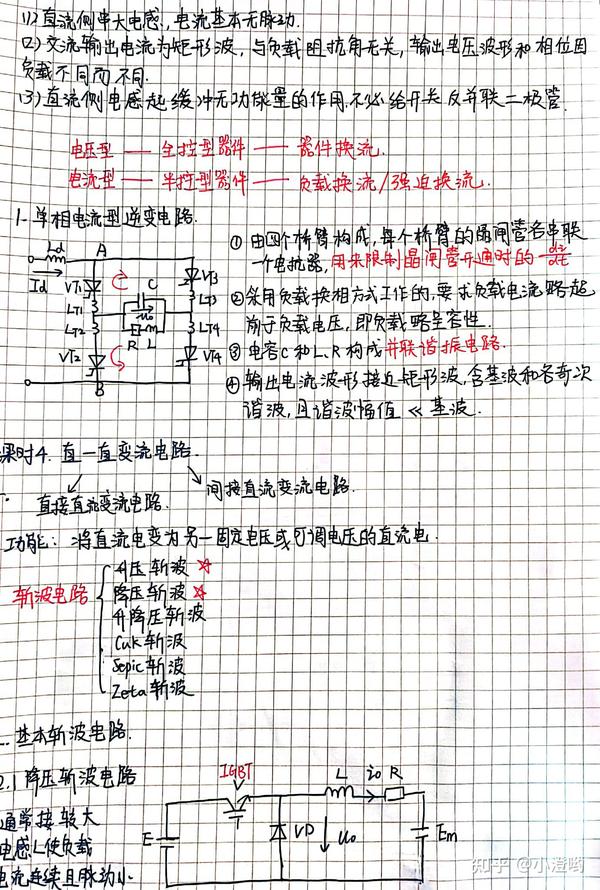 (1) 直流侧串大电感,电流基本无脉动.
(2) 交流输出电流为矩形波,与负载阻抗角无关,输出电压波形和相位因
负载不同而不同.
(3) 直流侧电感起缓冲无功能量的作用,不必给开关反并联二极管.
电压型 —— 全控型器件 —— 器件换流.
电流型 —— 半控型器件 —— 负载换流/强迫换流.
1. 单相电流型逆变电路.
Ld
A
Id
VT1
LT1
LT2
VT2
C
R
L
VT3
LT3
LT4
VT4
B
① 由四个桥臂构成,每个桥臂的晶闸管各串联
一个电抗器,用来限制晶闸管开通时的 di/dt
② 采用负载换相方式工作的,要求负载电流略超
前于负载电压,即负载略呈容性.
③ 电容C和L、R构成并联谐振电路.
④ 输出电流波形接近矩形波,含基波和各奇次
谐波,且谐波幅值 << 基波.
课时4. 直—直变流电路.
直接直流变流电路.
间接直流变流电路.
功能: 将直流电变为另一固定电压或可调电压的直流电.
斩波电路
升压斩波 ☆
降压斩波 ☆
升降压斩波
Cuk 斩波
Sepic 斩波
Zeta 斩波
基本斩波电路.
2.1 降压斩波电路
通常接较大
电感L使负载
电流连续且脉动小
IGBT
E
VD
uo
L
io
R
Em
知乎 @小澄哟